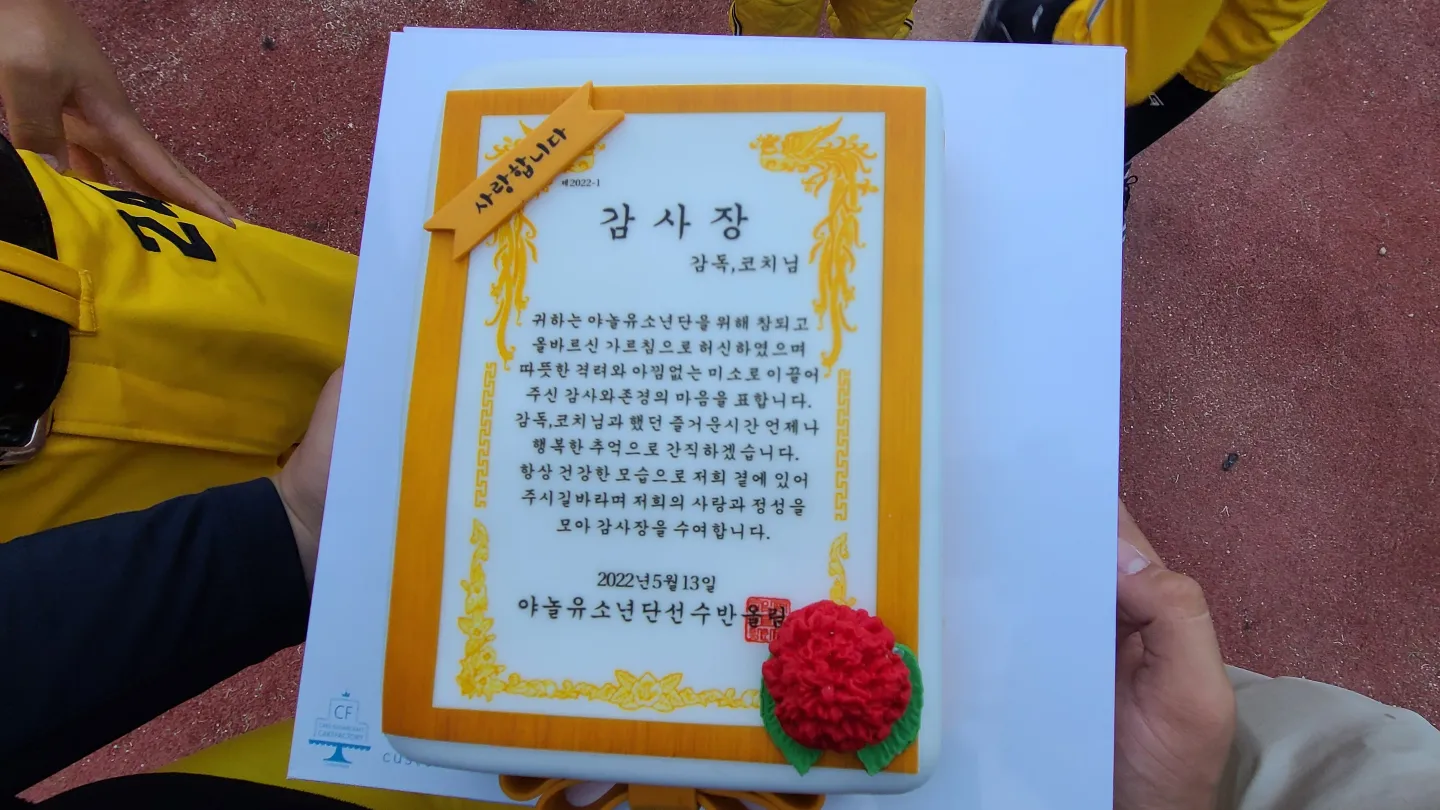 사랑합니다
제2022-1
감사장
감독,코치님
귀하는 야놀유소년단을 위해 참되고
올바르신 가르침으로 허신하였으며
따뜻한 격려와 아낌없는 미소로 이끌어
주신 감사와존경의 마음을 표합니다.
감독,코치님과 했던 즐거운시간 언제나
행복한 추억으로 간직하겠습니다.
항상 건강한 모습으로 저희 곁에 있어
주시길바라며 저희의 사랑과 정성을
모아 감사장을 수여합니다.
2022년5월13일
야놀유소년단선수반올림
24
CF
CAKEFACTORY